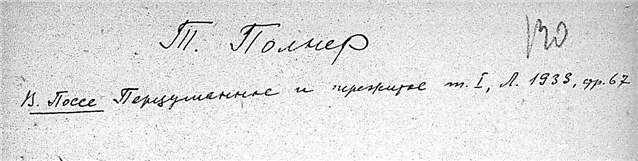 Т. Полнер
130
В. Поссе Передуманное и пережитое т. I, Л. 1933, стр. 67